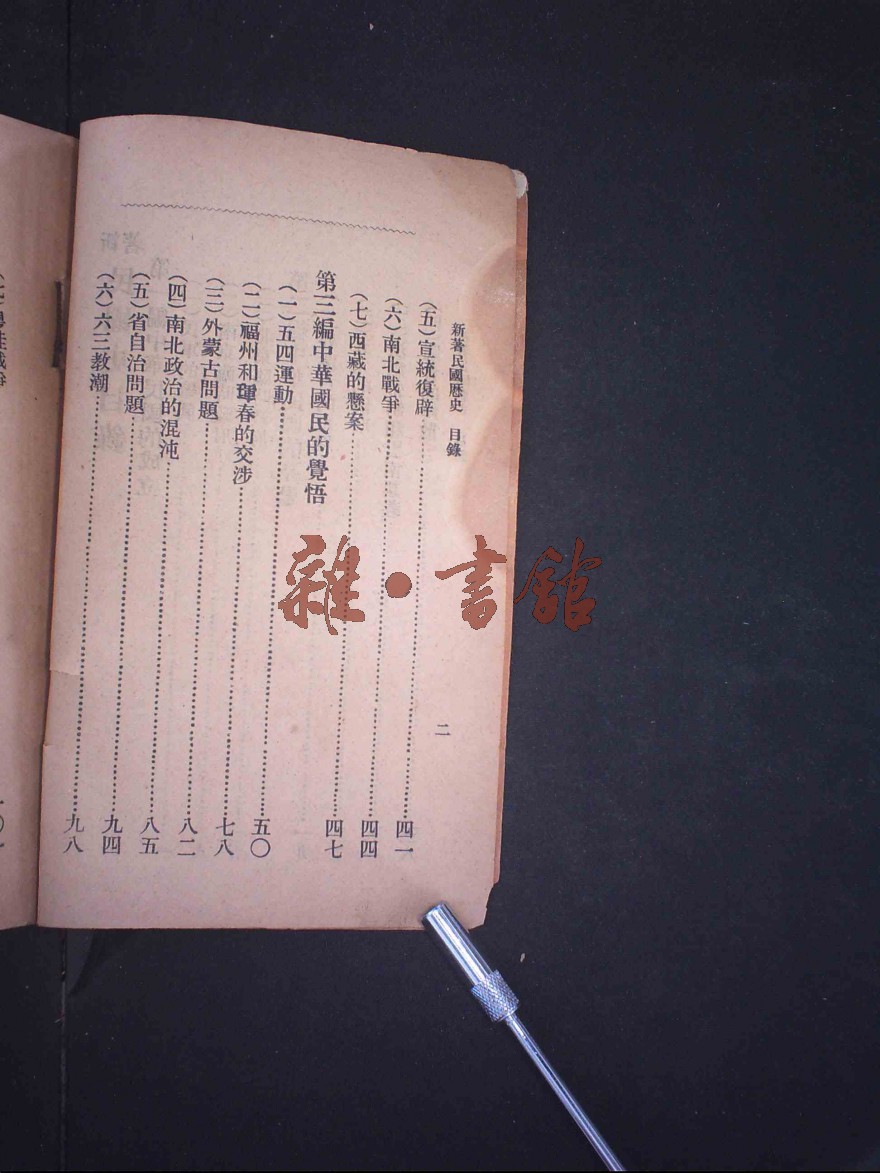 新著民國歷史 目錄 二
（五）宣統復辟……四一
（六）南北戰爭……四四
（七）西藏的懸案……四七
第三編中華國民的覺悟
（一）五四運動……五〇
（二）福州和琿春的交涉……七八
（三）外蒙古問題……八二
（四）南北政治的混沌……八五
（五）省自治問題……九四
（六）六三教潮……九八
雜·書館